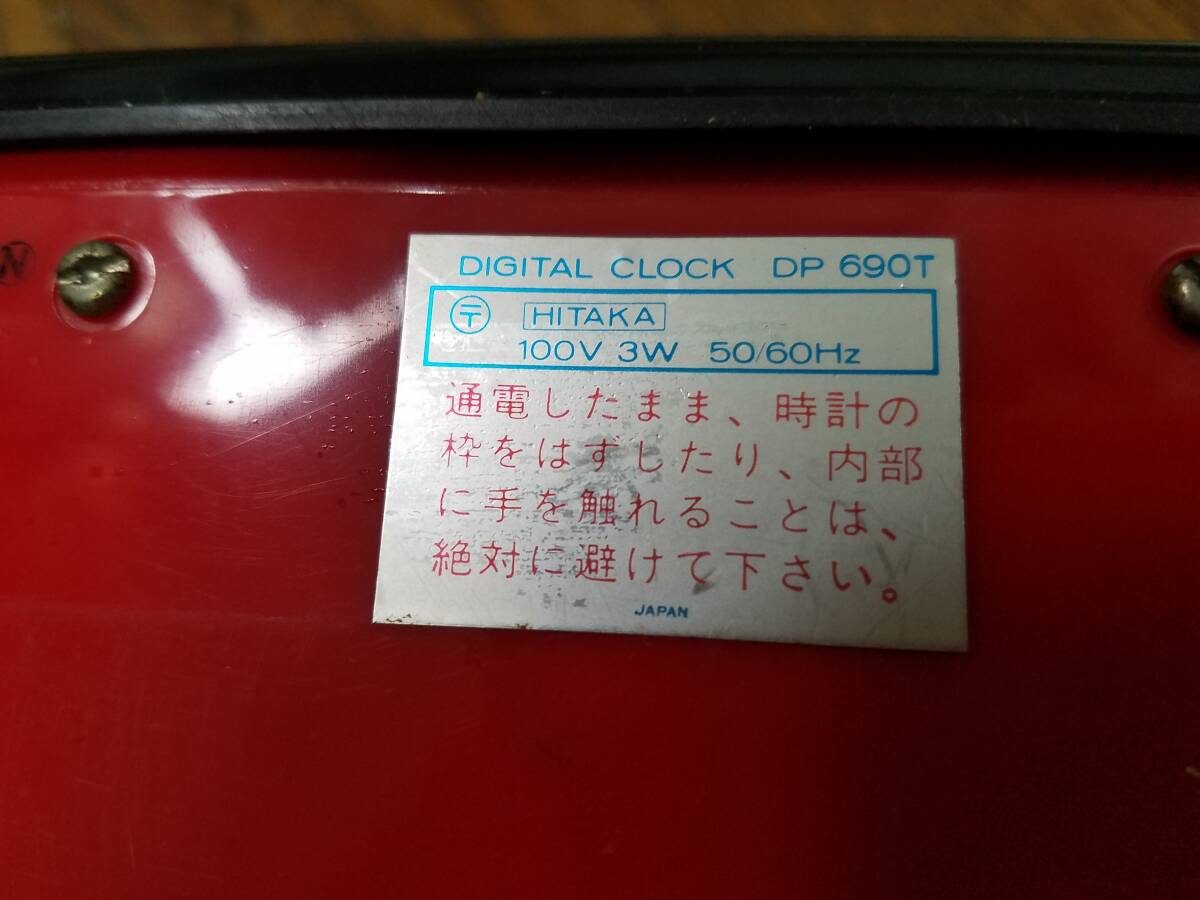 DIGITAL CLOCK DP 690T
〒 HITAKA
100V 3W 50/60Hz
通電したまま、時計の
枠をはずしたり、内部
に手を触れることは、
絶対に避けて下さい。
JAPAN
N